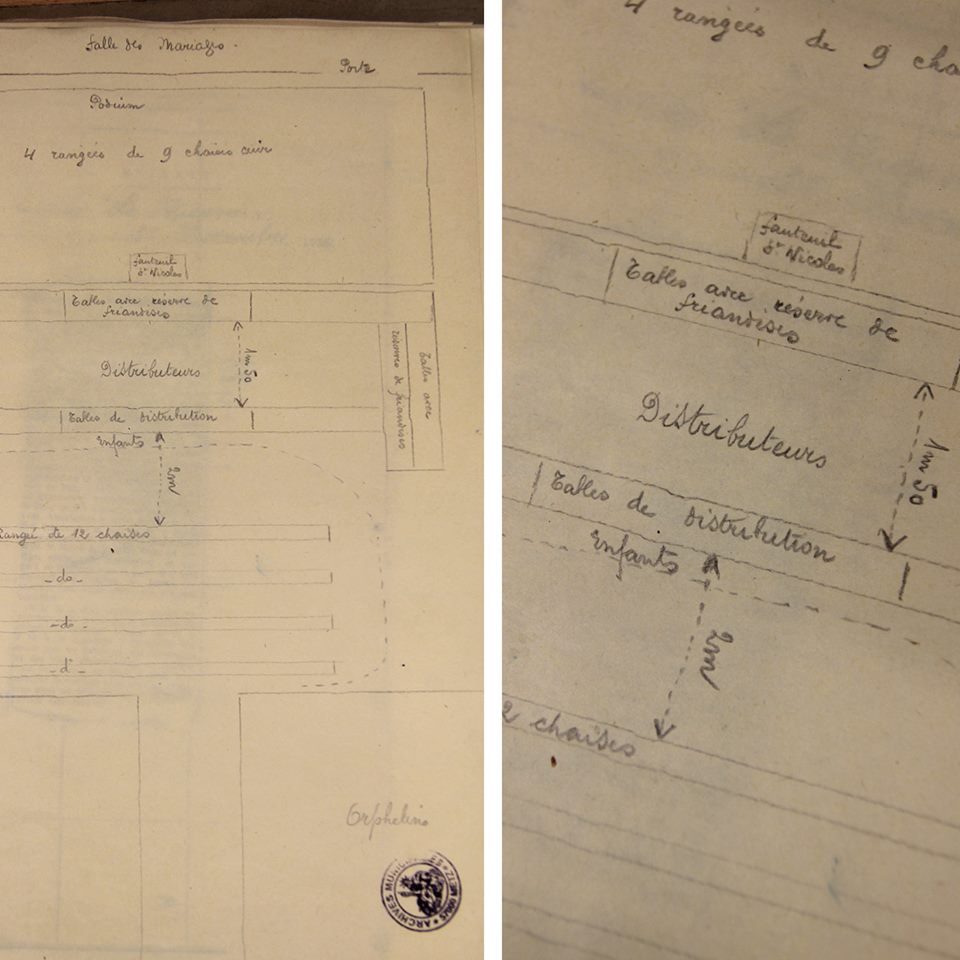 Salle des Mariages.
Porte
Podium
4 rangées de 9 chaises cuir
fauteuil
St Nicolas
Tables avec réserve de
friandises
1m50
Distributeurs
Tables avec
réserve de friandises
Tables de distribution
Enfants
2m
Rangé de 12 chaises
- do -
- do -
- d° -
Orphelins
ARCHIVES MUNICIPALES * METZ
4 rangées de 9 cha
fauteuil
St Nicolas
Tables avec réserve de
friandises
Distributeurs
1m50
Tables de distribution
Enfants
2m
2 chaises